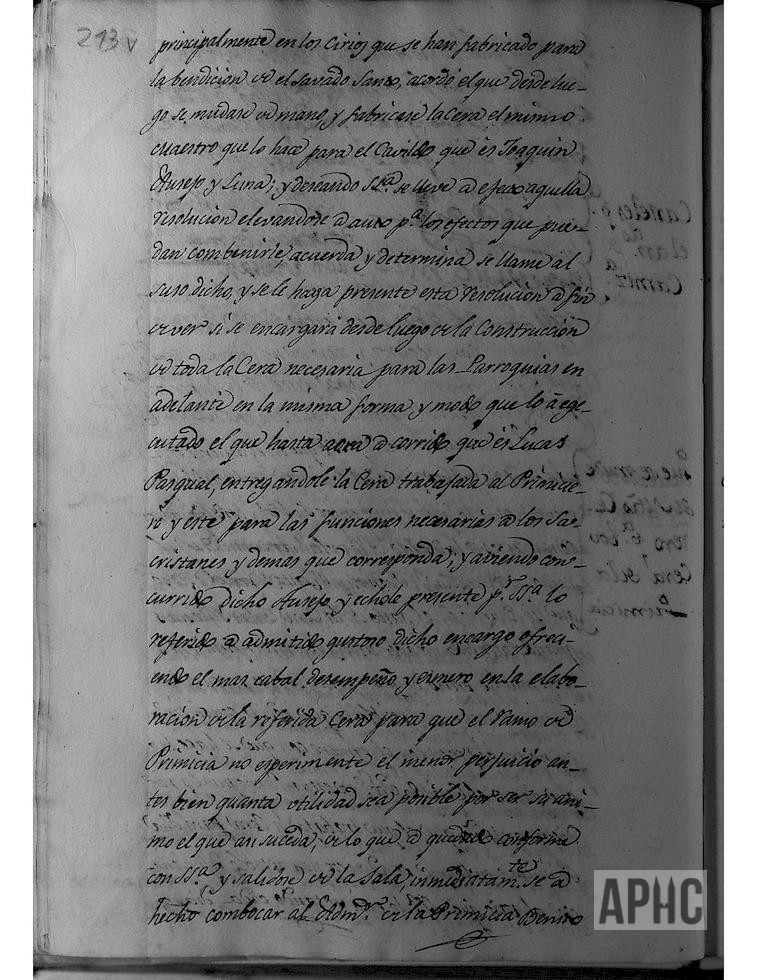 213v
principalmente en los Cirios que se han fabricado para
la bendicion de el Savado Santo, acordó el que desde lue-
go se mudase de mano, y fabricase la Cera el mismo
cuaestro que lo hace para el Cavildo que és Joaquin
Ausejo y Luna; y deseando SSª. se lleve a efecto aquella
resolucion elevandose a auto pª. los efectos que pue-
dan combenirle, acuerda y determina se llame al
suso dicho, y se le haga presente esta resolucion a fin
de ver si se encargará desde luego de la Construccion
de toda la Cera necesaria para las Parroquias en
adelante en la misma forma, y modo que lo á ege-
cutado el que hasta aora a corrido que és Lucas
Pasqual, entregandole la Cera trabajada al Primicie-
ro y este para las funciones necesarias a los Sa-
cristanes y demas que corresponda; y aviendo con-
currido dicho Ausejo, y echole presente pr. SSª. lo
referido a admitido gustoso dicho encargo ofreci-
endo el mas cabal desempeño, y esmero en la elabo-
racion de la referida Cera para que el Ramo de
Primicia no experimente el menor perjuicio an-
tes bien quanta utilidad sea posible por ser su ani-
mo el que asi suceda, de lo que a quedado conforme
con SSª., y salidose de la Sala, inmediatamte. se a
hecho combocar al Admr. de la Primicia Benito
APHC